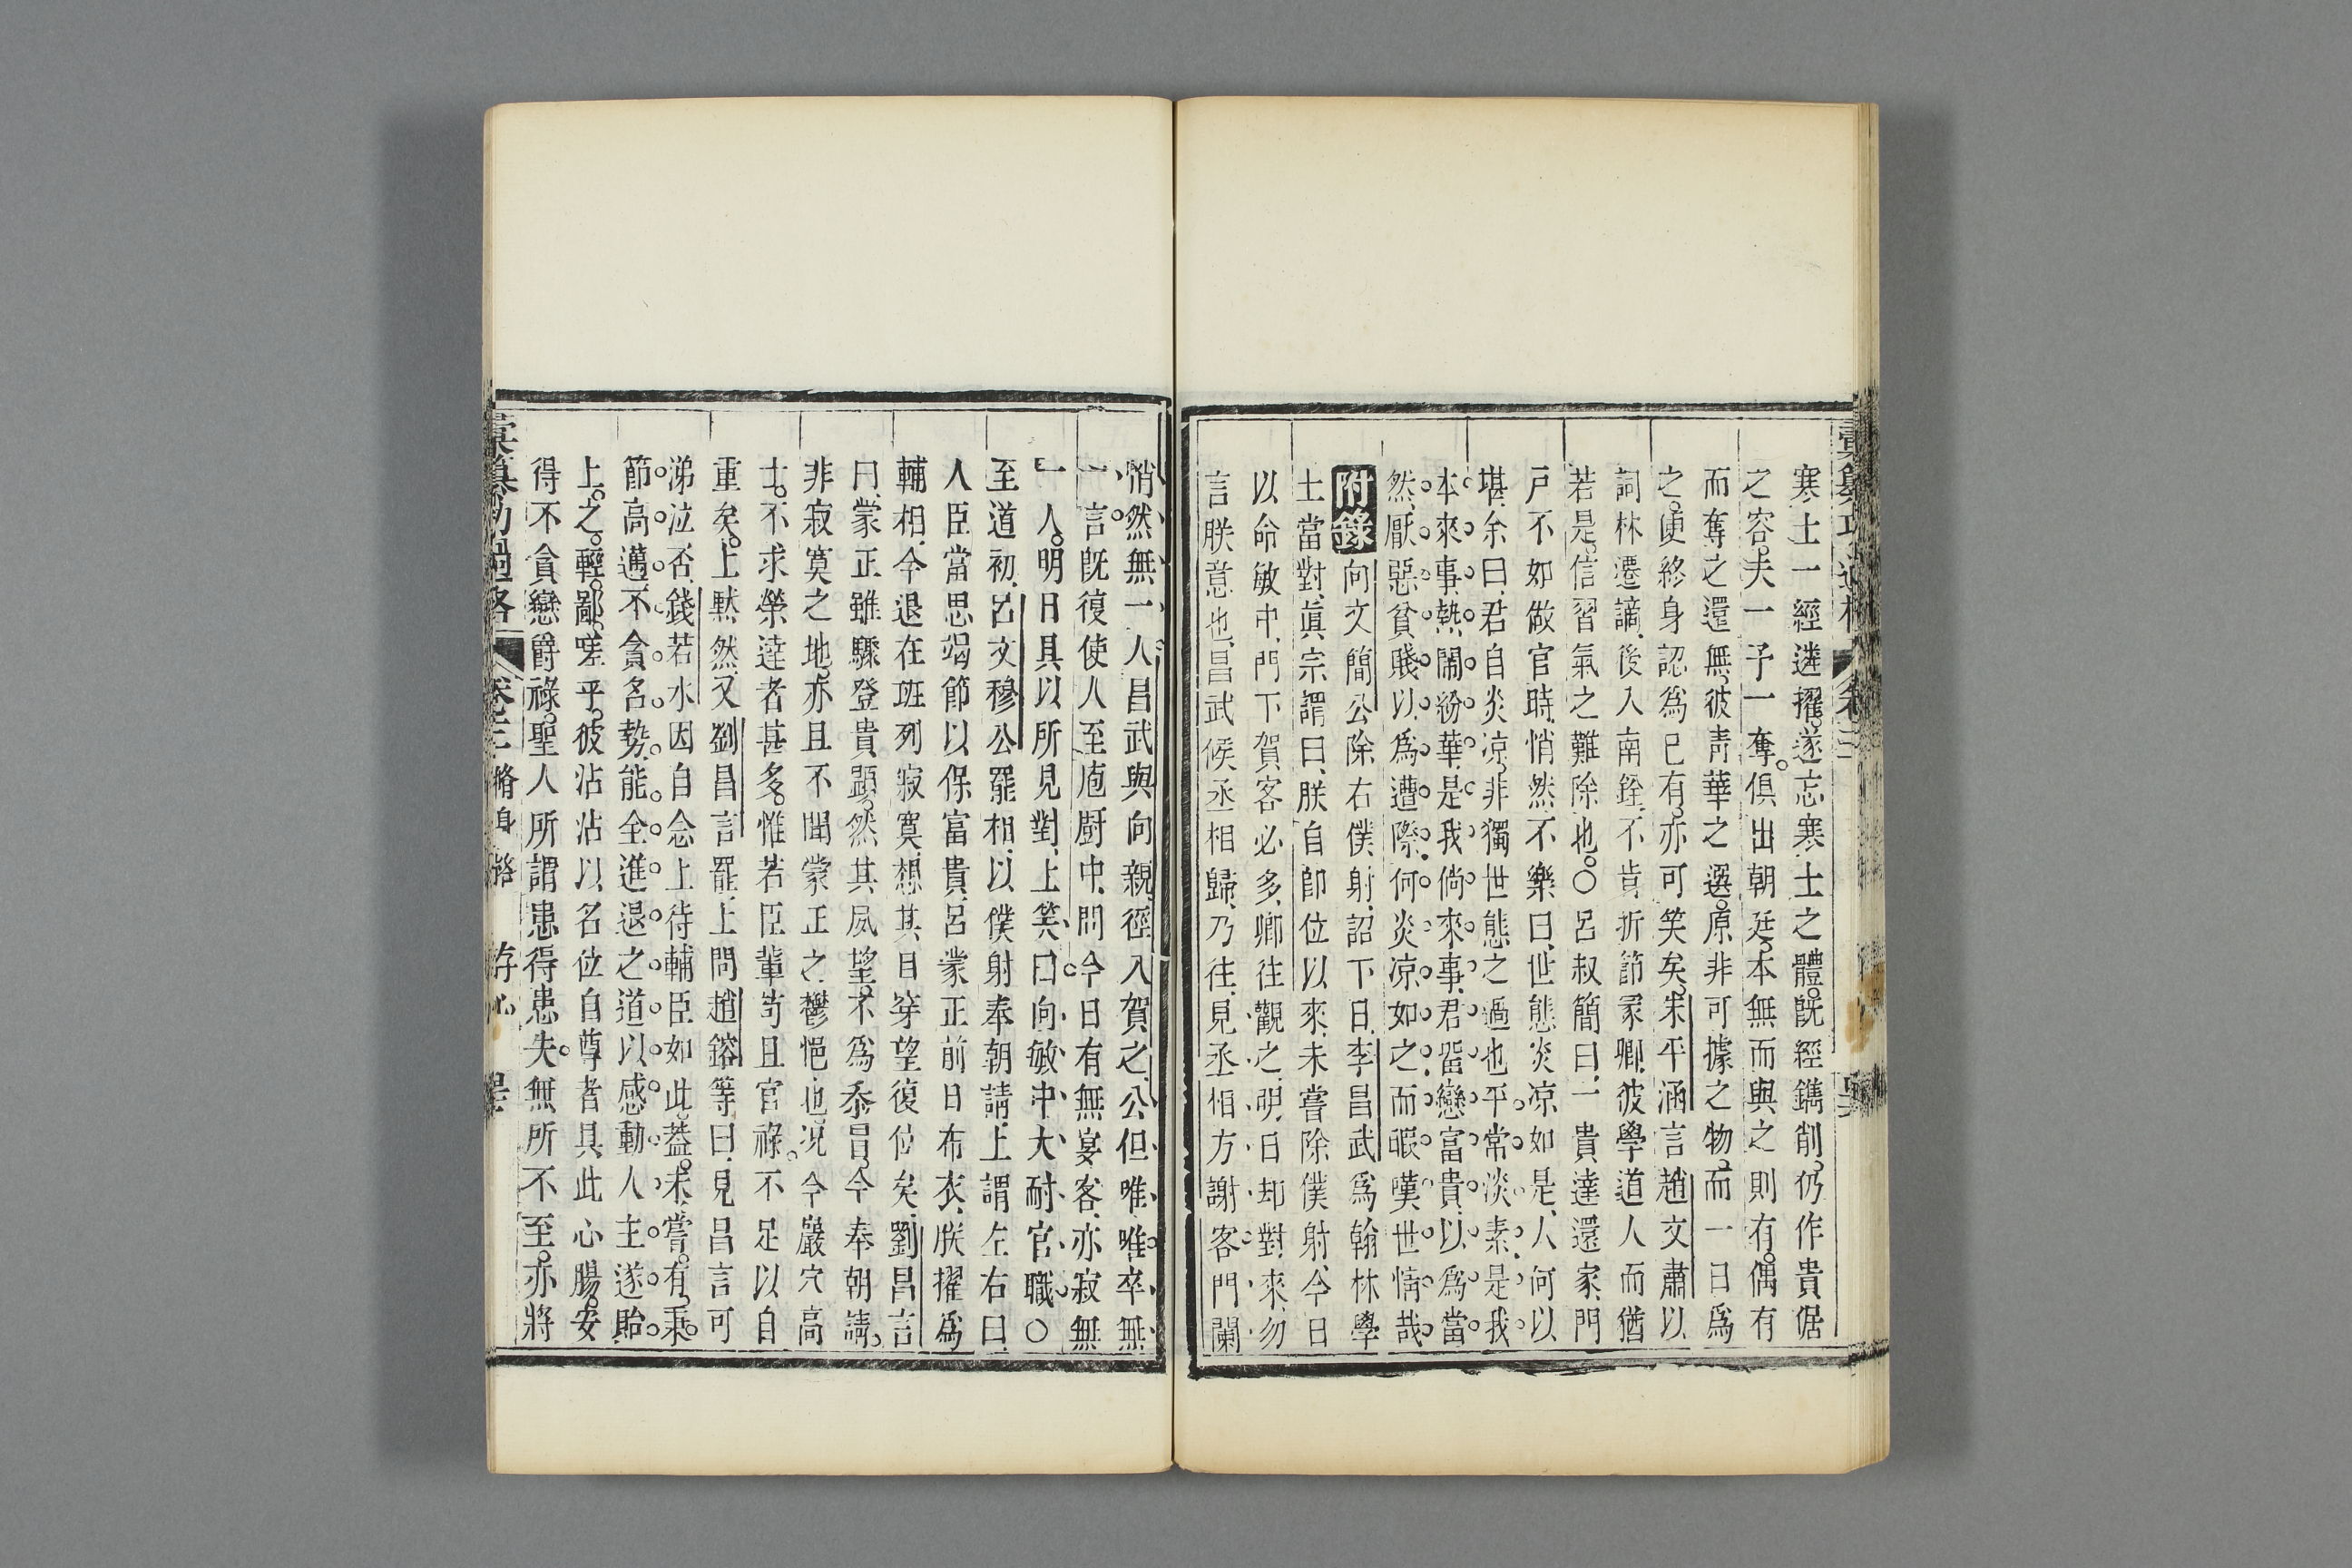 寒士一經遴擢。遂忘寒士之體。旣經鐫削。仍作貴倨
之容。夫一予一奪。俱出朝廷。本無而與之則有。偶有
而奪之還無。彼靑華之選。原非可據之物。而一日爲
之。便終身認爲已有。亦可笑矣。朱平涵言趙文肅以
詞林遷謫、後入南銓、不肯折節冢卿、彼學道人而猶
若是。信習氣之難除也。○呂叔簡曰、一貴達還家、門
戸不如做官時、悄然不樂曰、世態炎凉如是、人何以
堪、余曰、君自炎凉、非獨世態之過也、平常淡素、是我
本來事、熱鬧紛華、是我倘來事、君畱戀富貴、以爲當
然、厭惡貧賤、以爲遭際、何炎凉如之、而暇嘆世情哉
附錄向文簡公除右僕射、詔下日、李昌武爲翰林學
士當對、眞宗謂曰、朕自卽位以來、未嘗除僕射、今日
以命敏中、門下賀客必多、卿往觀之、明日却對來、勿
言朕意也、昌武候丞相歸、乃往見、丞相方謝客、門闌
悄然無一人、昌武與向親、徑入賀之、公但唯唯、卒無
一言、旣復使人至庖厨中、問今日有無宴客、亦寂無
一人。明日具以所見對、上笑曰、向敏中大耐官職○
至道初、呂文穆公罷相、以僕射奉朝請、上謂左右曰、
人臣當思竭節以保富貴、呂蒙正前日布衣、朕擢爲
輔相、今退在班列寂寞、想其目穿望復位矣、劉昌言
曰、蒙正雖驟登貴顯、然其夙望、不爲忝冒、今奉朝請。
非寂寞之地、亦且不聞蒙正之鬱悒也、况今巖穴高
士。不求榮達者甚多。惟若臣輩苟且官祿。不足以自
重矣。上默然、又劉昌言罷、上問趙鎔等曰、見昌言可
涕泣否、錢若水因自念上待輔臣如此。葢未嘗。有秉。
節高邁、不貪名勢、能全進退之道以感動人主、遂貽
上之。輕。鄙。嗟乎。彼沾沾以名位自尊者、具此心腸。安
得不貪戀爵祿。聖人所謂患得患失。無所不至。亦將